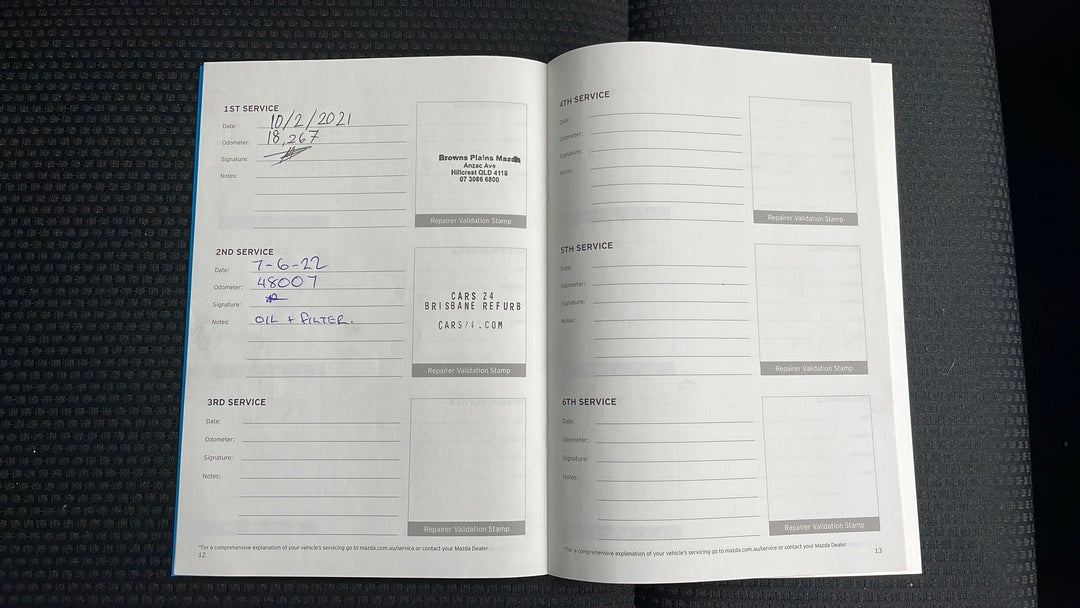 1ST SERVICE
Date: 10/2/2021
Odometer: 18,267
Signature:
Notes:
Browns Plains Mazda
Anzac Ave
Hillcrest QLD 4118
07 3086 6800
Repairer Validation Stamp
2ND SERVICE
Date: 7-6-22
Odometer: 48007
Signature:
Notes: OIL + FILTER.
CARS 24
BRISBANE REFURB
CARS24.COM
Repairer Validation Stamp
3RD SERVICE
Date:
Odometer:
Signature:
Notes:
Repairer Validation Stamp
*For a comprehensive explanation of your vehicle's servicing go to mazda.com.au/service or contact your Mazda Dealer
12
4TH SERVICE
Date:
Odometer:
Signature:
Notes:
Repairer Validation Stamp
5TH SERVICE
Date:
Odometer:
Signature:
Notes:
Repairer Validation Stamp
6TH SERVICE
Date:
Odometer:
Signature:
Notes:
Repairer Validation Stamp
*For a comprehensive explanation of your vehicle's servicing go to mazda.com.au/service or contact your Mazda Dealer
13